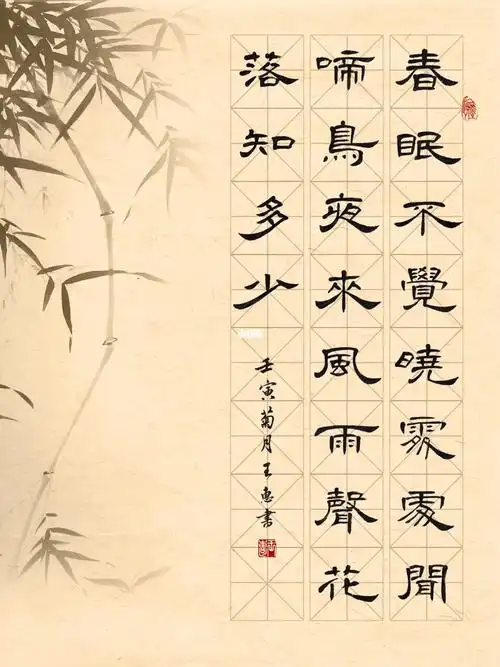 春眠不覺曉處處聞
啼鳥夜來風雨聲花
落知多少
壬寅菊月王惠書